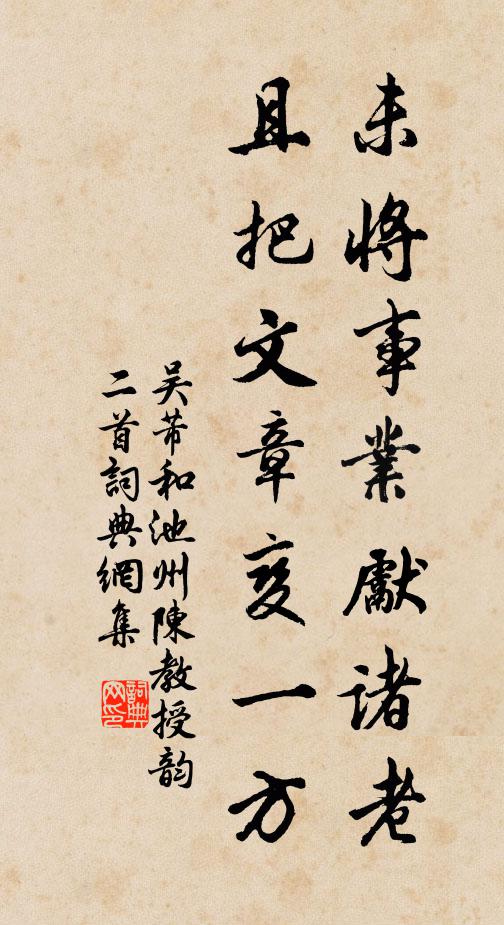 未将事業獻诸老
且把文章变一方
吴芾和池州陳教授韵
二首詞典網集
詞典网印